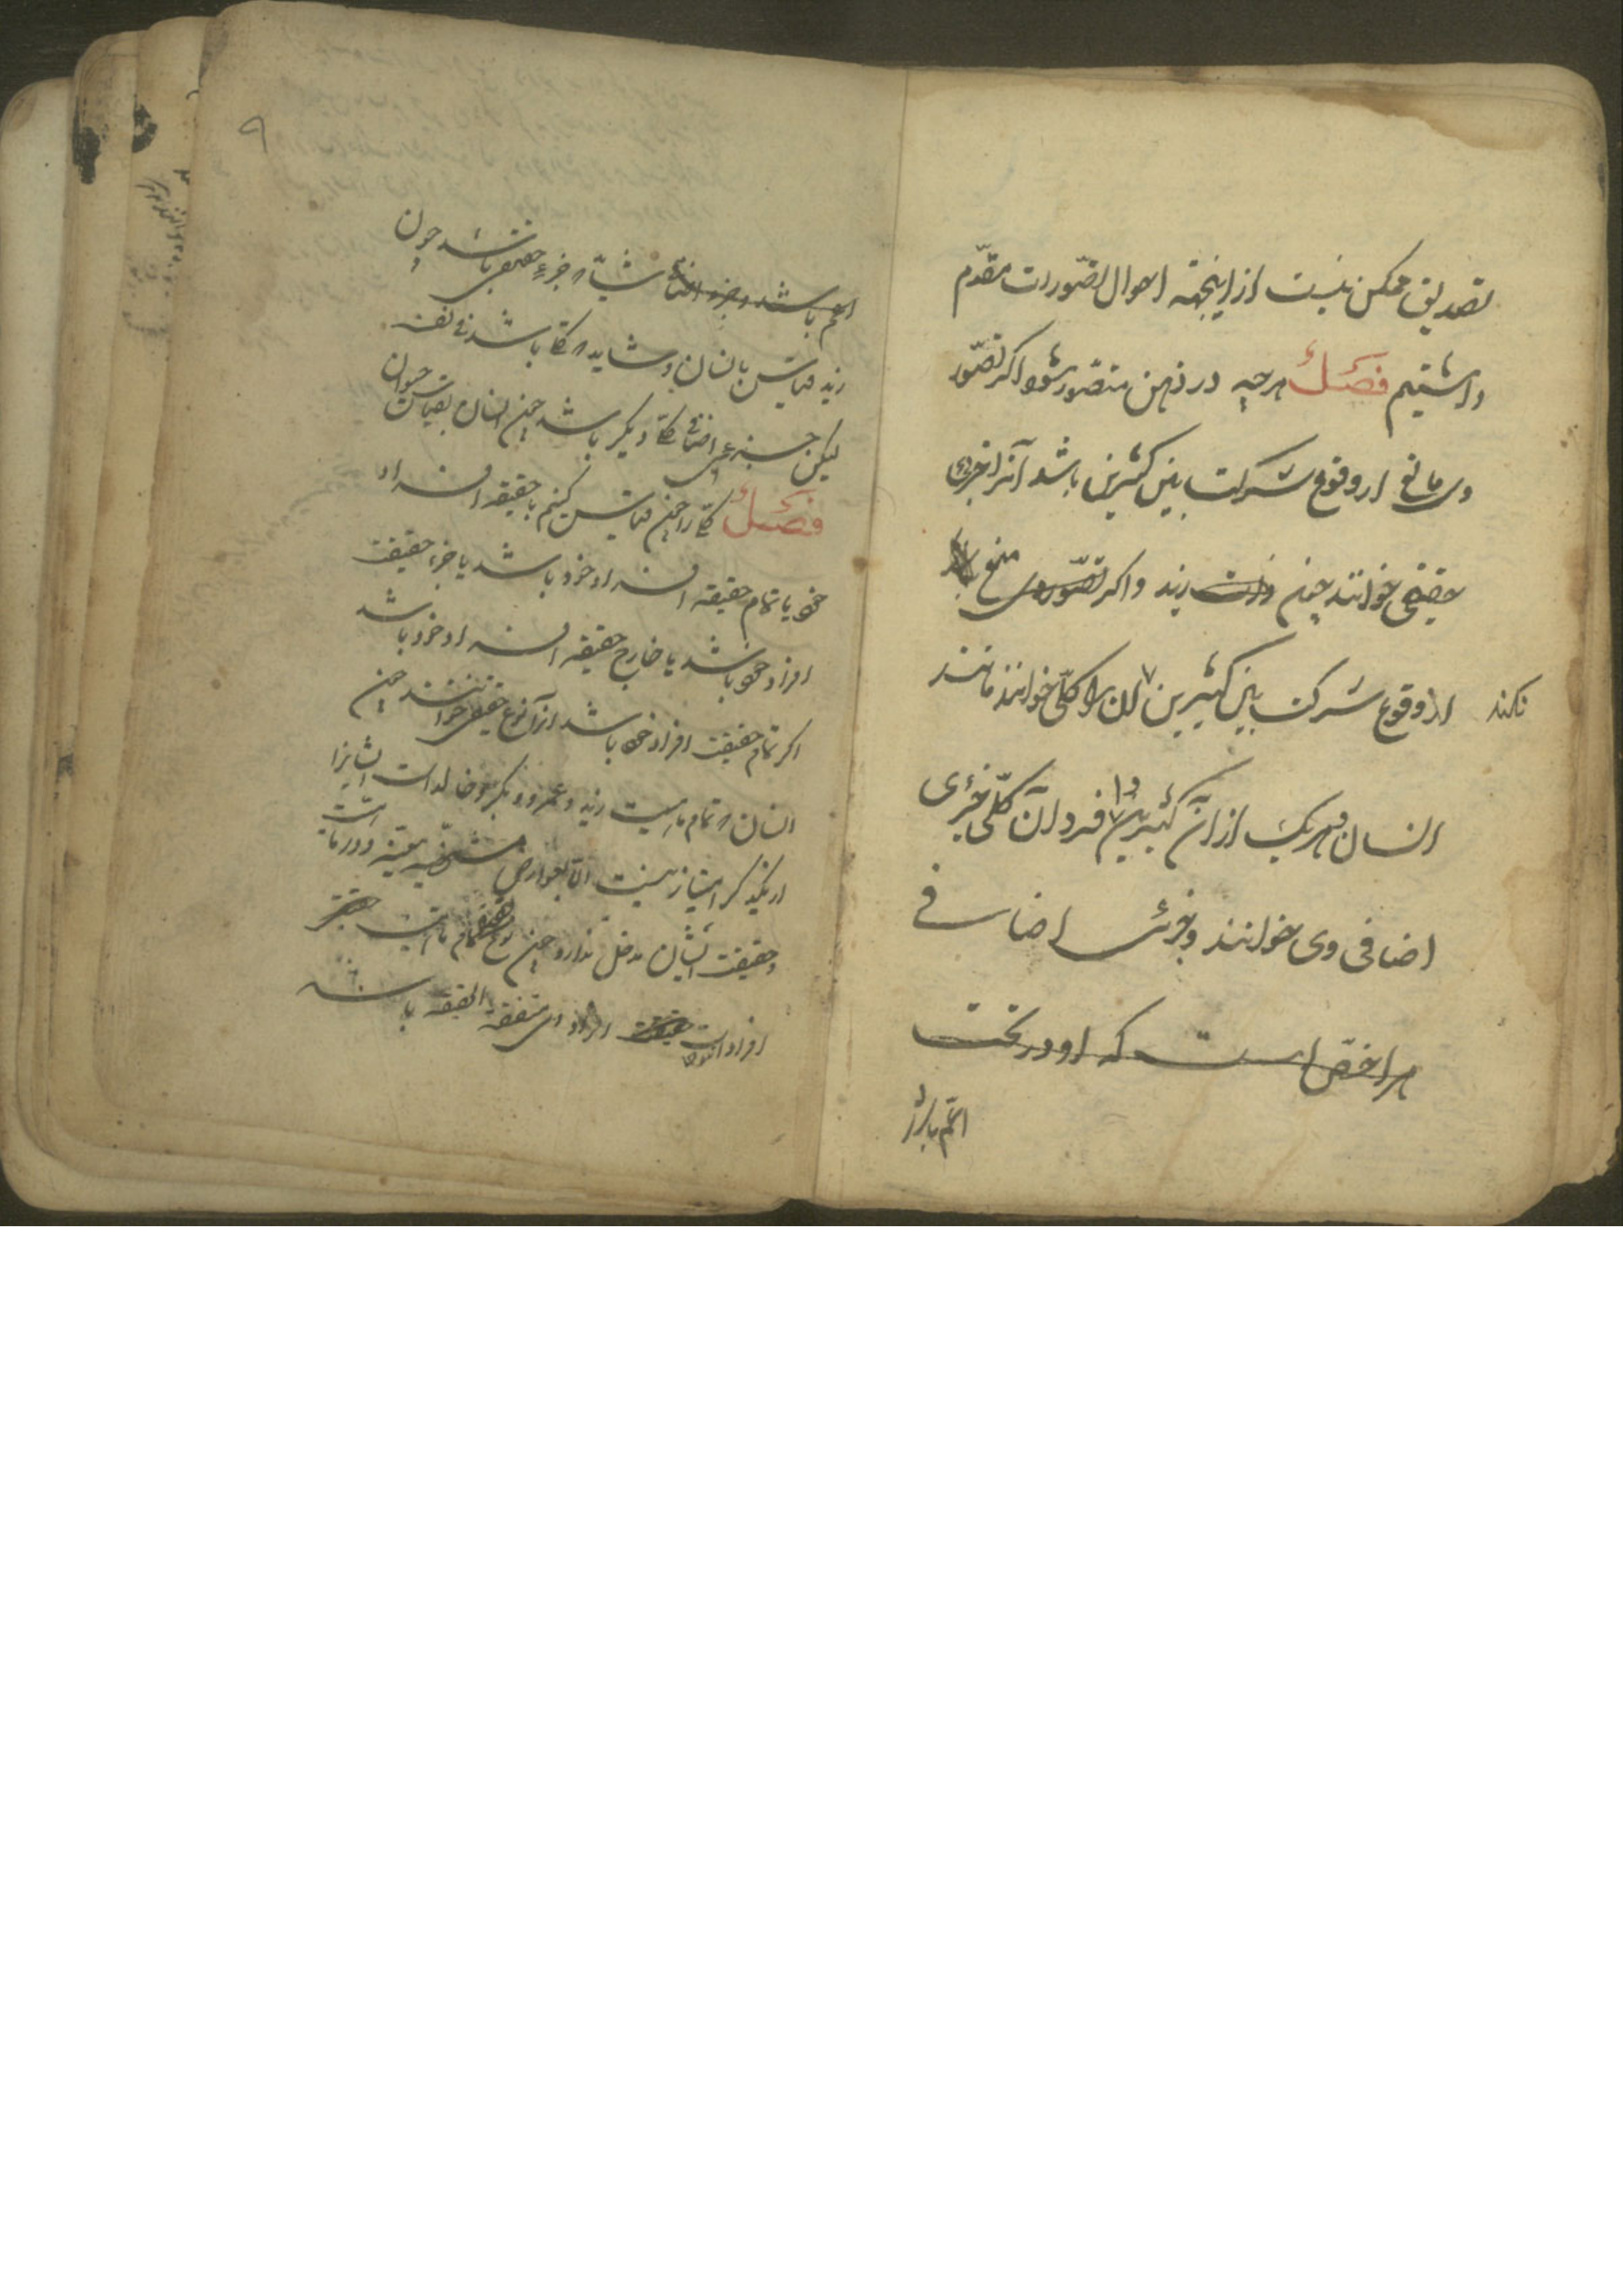 تصدیق ممکن نیست از اینجهة احوال تصورات مقدم
داشتیم فصل هرچه در ذهن متصور شود اگر تصور
وی مانع از وقوع شرکت بین کثیرین باشد آنرا جزئی
حقیقی خوانند چون ذات زید و اگر تصور وی منع
نکند از وقوع شرکت بین کثیرین آن را کلی خوانند مانند
انسان و هر یک از آن کثیرین را فرد آن کلی و جزئی
اضافی وی خوانند و جزئی اضافی
هر اخص است که او در تحت
اعم باشد
۹
اعم باشد و جزء اضافی شاید که جزء حقیقی باشد چون
زید بقیاس بانسان و شاید که کلی باشد فی نفسه
لیکن جزء اضافی کلی دیگر باشد چون انسان بقیاس حیوان
فصل کلی را چون قیاس کنیم با حقیقة افراد
خود یا تمام حقیقة افراد خود باشد یا جزء حقیقت
افراد خود باشد یا خارج حقیقة افراد خود باشد
اگر تمام حقیقت افراد خود باشد آنرا نوع حقیقی خوانند چون
انسان که تمام ماهیت زید و عمرو و بکر و خالد است ایشانرا
از یکدیگر امتیاز نیست الا بعوارض مشخصه معینه و در ماهیت
و حقیقت ایشان مدخل ندارد چون نوع تمام ماهیت
افراد است افراد او متفقة الحقیقة باشد